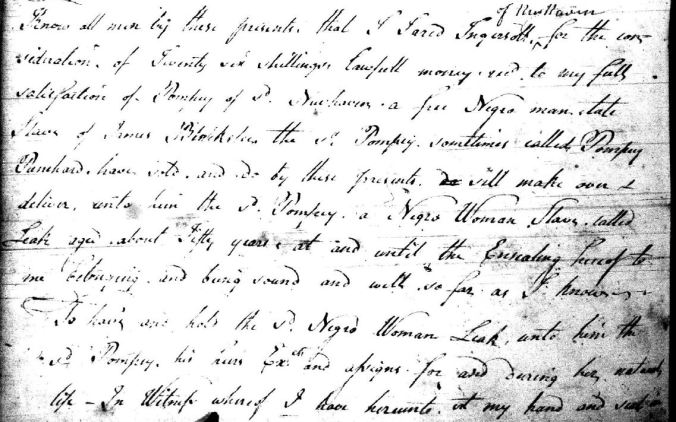 of Newhaven
Know all men by these presents that I Jared Ingersoll, for the con-
sideration of Twenty six shillings Lawfull money recd. to my full
satisfaction of Pompey of sd. Newhaven a free Negro man late
Slave of James the sd. Pompey sometimes called Pompey
Punchard have sold and do by these presents sell make over &
deliver unto him the sd. Pompey a Negro Woman Slave called
Leah aged about Fifty years at and until the Ensealing hereof to
me belonging and being sound and well so far as I know
To have and hold the sd. Negro Woman Leah unto him the
sd. Pompey his heirs Exrs. and assigns for and during her natural
life - In Witness whereof I have hereunto set my hand and seal